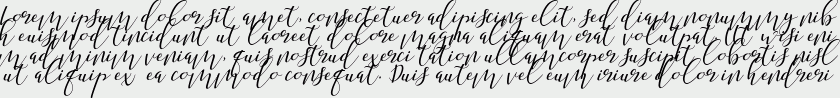 Lorem ipsum dolor sit amet, consectetuer adipiscing elit, sed diam nonummy nib
h euismod tincidunt ut laoreet dolore magna aliquam erat volutpat. Ut wisi eni
m ad minim veniam, quis nostrud exerci tation ullamcorper suscipit lobortis nisl
ut aliquip ex ea commodo consequat. Duis autem vel eum iriure dolor in hendreri